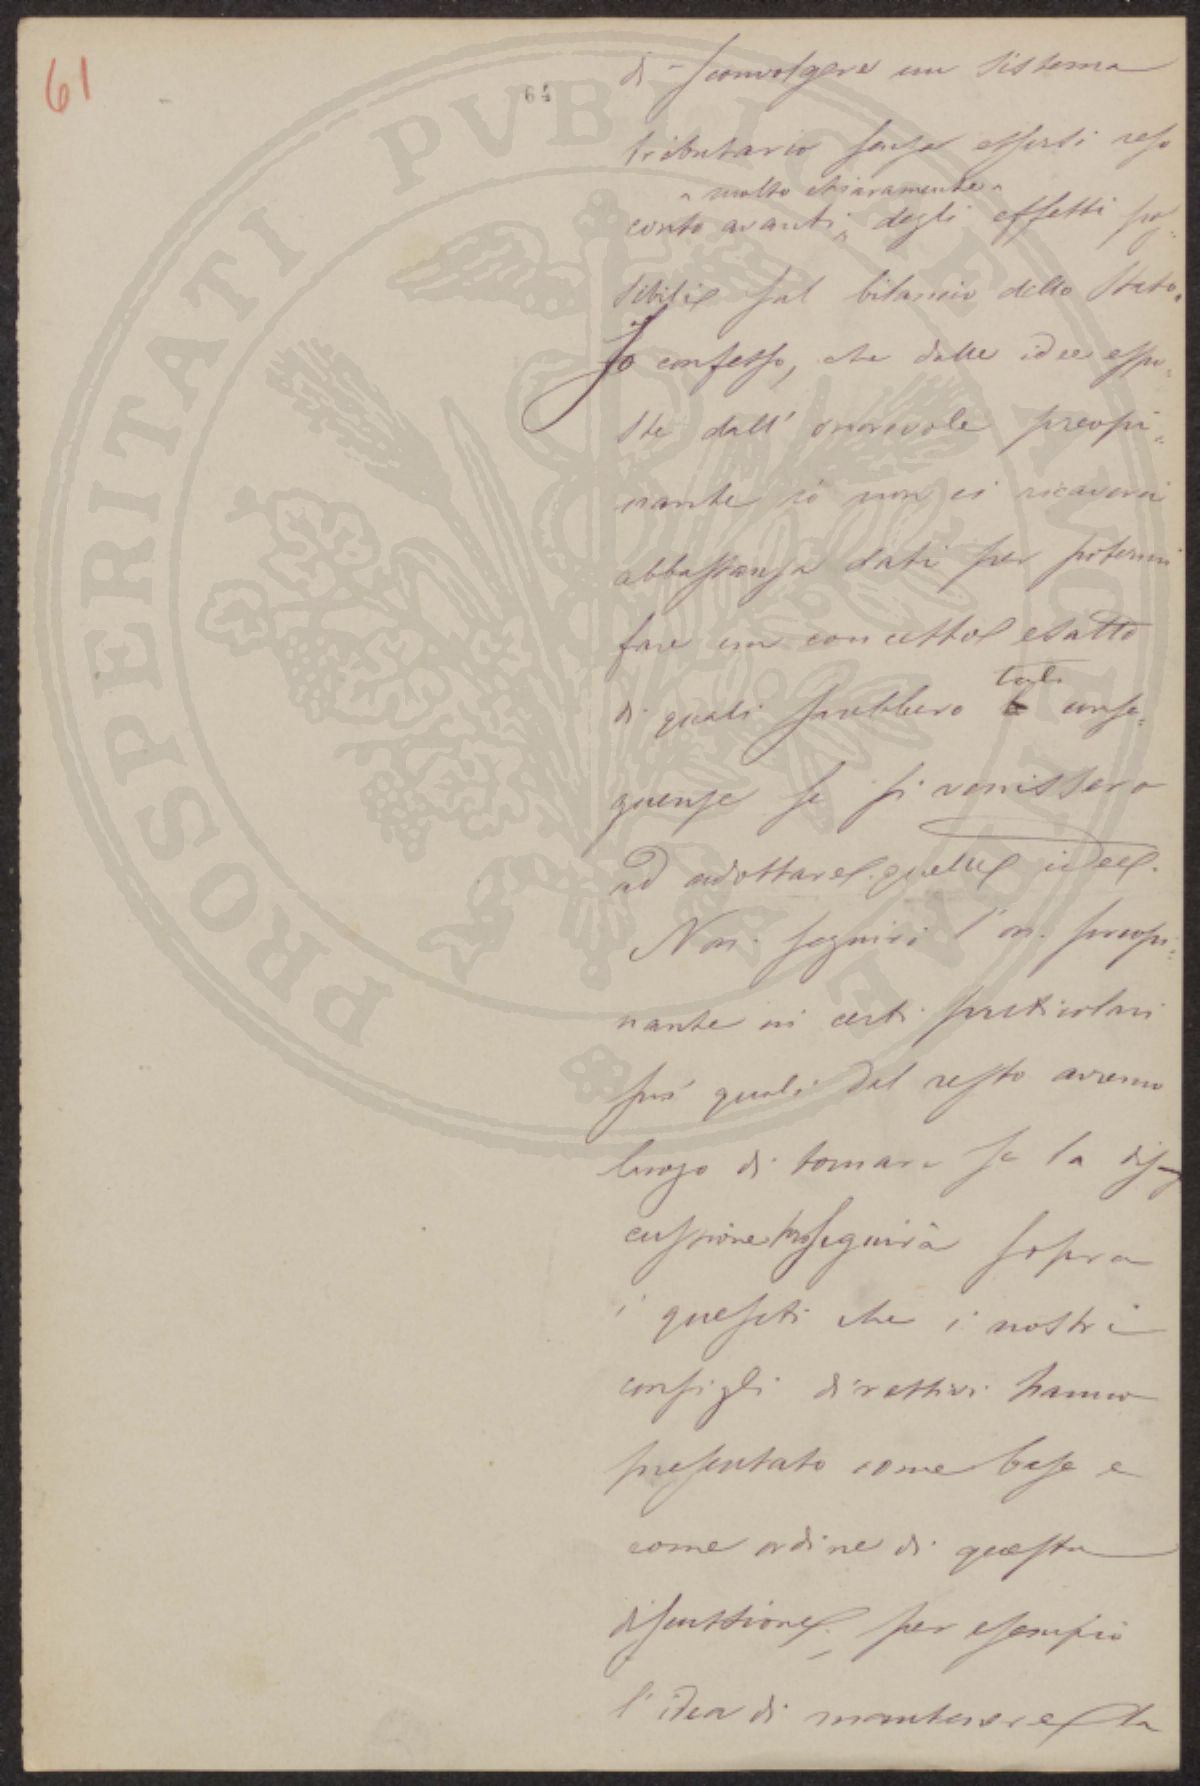 61
64
di sconvolgere un sistema
tributario senza essersi reso
molto chiaramente
conto avanti degli effetti pos=
sibili sul bilancio dello Stato.
Io confesso, che dalle idee espo=
ste dall' onorevole preopi=
nante io non ci ricaverei
abbastanza dati per potermi
fare un concetto esatto
tali
di quali sarebbero conse=
guenze se si venissero
ad adottare quelle idee.
Non seguirò l'on. preopi=
nante in certi particolari
sui quali del resto avremo
luogo di tornare se la dis=
cussione proseguirà sopra
i quesiti che i nostri
consigli direttivi hanno
presentato come base e
come ordine di questa
discussione, per esempio
l'idea di mantenere la
PROSPERITATI PVBLICAE AVGENDAE